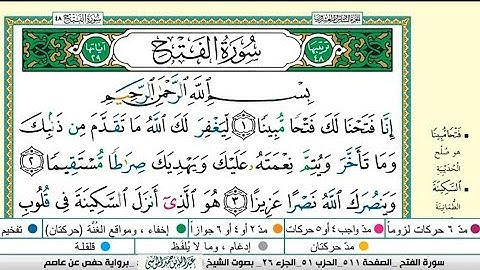 سُورَةُ الفَتْحِ ٤٨
سُورَةُ الفَتْحِ
ترتيبها ٤٨
آياتها ٢٩
بِسْمِ اللَّهِ الرَّحْمَٰنِ الرَّحِيمِ
إِنَّا فَتَحْنَا لَكَ فَتْحًا مُّبِينًا ١ لِّيَغْفِرَ لَكَ اللَّهُ مَا تَقَدَّمَ مِن ذَنۢبِكَ
وَمَا تَأَخَّرَ وَيُتِمَّ نِعْمَتَهُۥ عَلَيْكَ وَيَهْدِيَكَ صِرَٰطًا مُّسْتَقِيمًا ٢
وَيَنصُرَكَ اللَّهُ نَصْرًا عَزِيزًا ٣ هُوَ الَّذِىٓ أَنزَلَ السَّكِينَةَ فِى قُلُوبِ
فَتْحًا مُبِينًا
هو صُلح
الحُدَيْبِيَة
السَّكِينَةَ
الطُّمَأْنِينَة
مدّ ٦ حركات لزوماً
مدّ ٢ أو ٤ أو ٦ جوازاً
إخفاء، ومواقع الغُنَّة (حركتان)
تفخيم
مدّ واجب ٤ أو ٥ حركات
مدّ حركتان
إدغام، وما لا يُلفَظ
قلقلة
سورة الفتح _الصفحة ٥١١_ الحزب ٥١_ الجزء ٢٦_ بصوت الشيخ
برواية حفص عن عاصم